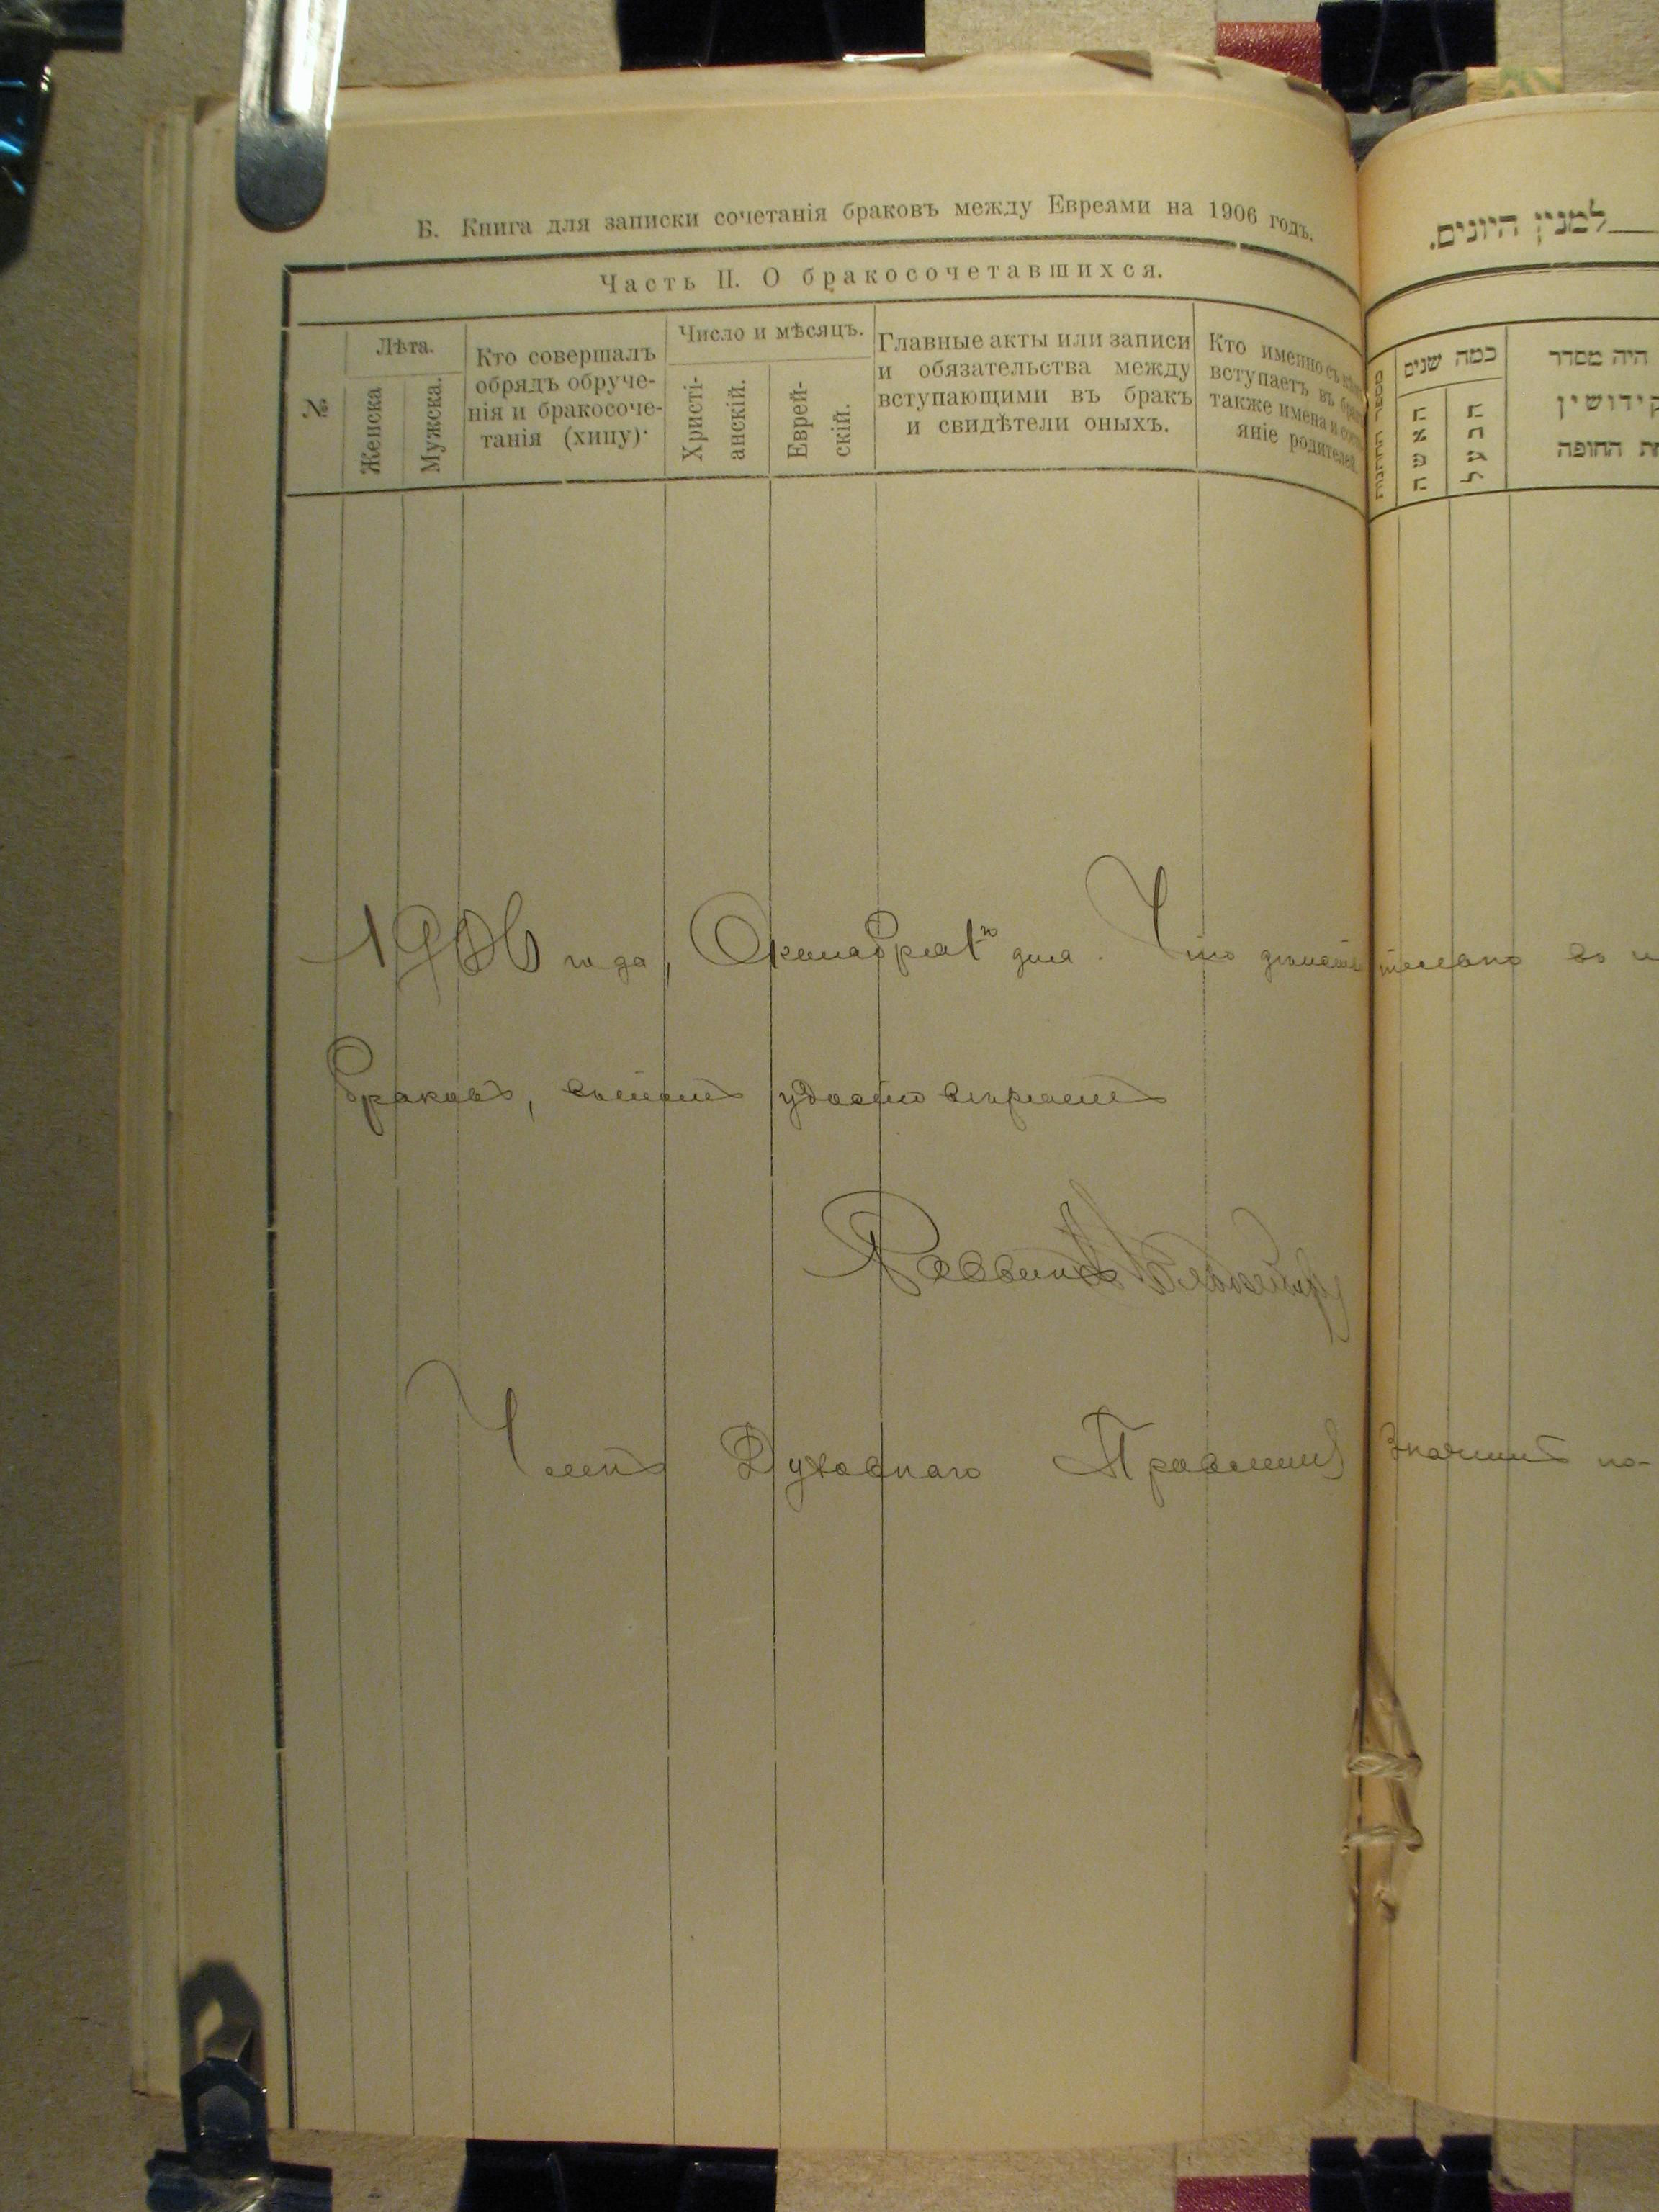 Б. Книга для записки сочетанія браковъ между Евреями на 1906 годъ.
Часть II. О бракосочетавшихся.
№
Лѣта.
Женска
Мужска.
Кто совершалъ
обрядъ обруче-
нія и бракосоче-
танія (хипу).
Число и мѣсяцъ.
Христі-
анскій.
Еврей-
скій.
Главные акты или записи
и обязательства между
вступающими въ бракъ
и свидѣтели оныхъ.
Кто именно съ кѣмъ
вступаетъ въ бракъ
также имена и состо-
яніе родителей.
1906 года, Октября 1го дня. Что дѣйстви тельно въ
браковъ, симъ удостовѣряемъ
Раввинъ
Членъ Духовнаго Правленія
למנין היונים.
מספר החתונות
כמה שנים
האשה
הבעל
היה מסדר
קידושין
החופה